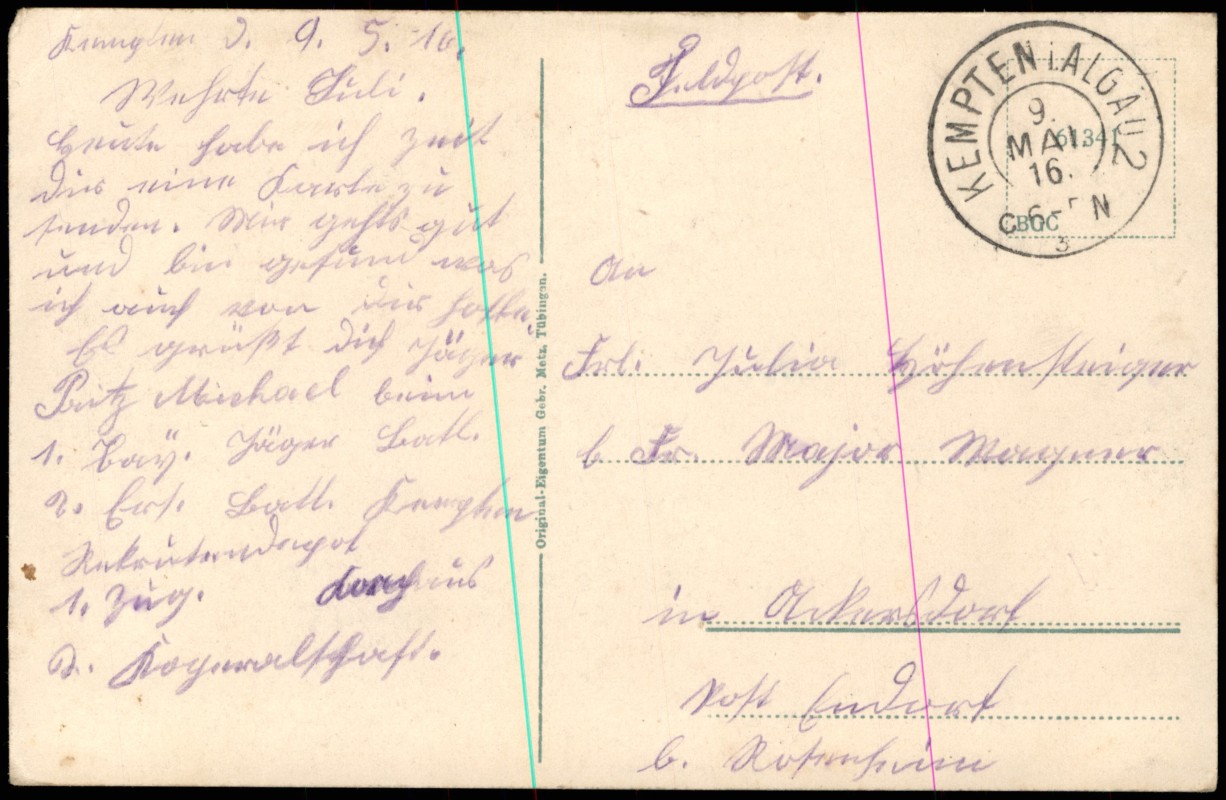 Kempten d. 9. 5. 16.
Wehrte Juli.
Heute habe ich Zeit
dir eine Karte zu
senden. Mir gehts gut
und bin gesund was
ich auch von dir hoffe.
Es grüßt dich Jäger
Michael beim
1. Bay. Jäger Batl.
2. Ers. Batl. Kempten
Rekrutendepot
1. Zug.
2. Koperalschaft.
Original-Eigentum Gebr. Metz, Tübingen.
Feldpost.
KEMPTEN i. ALGÄU 2
9.
MAI.
16.
61341
CBGC
An
Frl. Julia Höhensteiger
b Fr. Major Wagner
in Ackersdorf
Post Endorf
b. Rosenheim